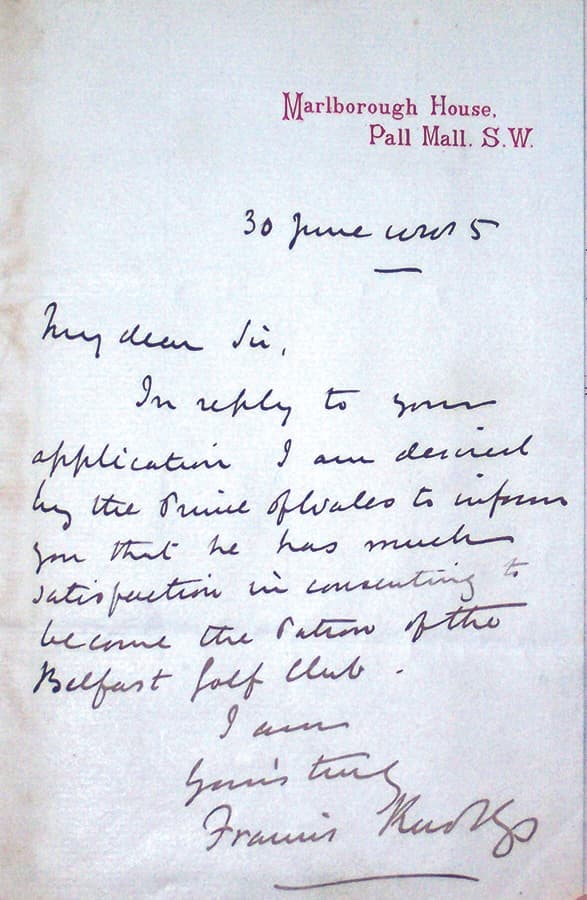 Marlborough House,
Pall Mall. S.W.
30 June 5
My dear Sir,
In reply to your
application I am desired
by the Prince of Wales to inform
you that he has much
satisfaction in consenting to
become the Patron of the
Belfast Golf Club.
I am
Yours truly
Francis Knollys